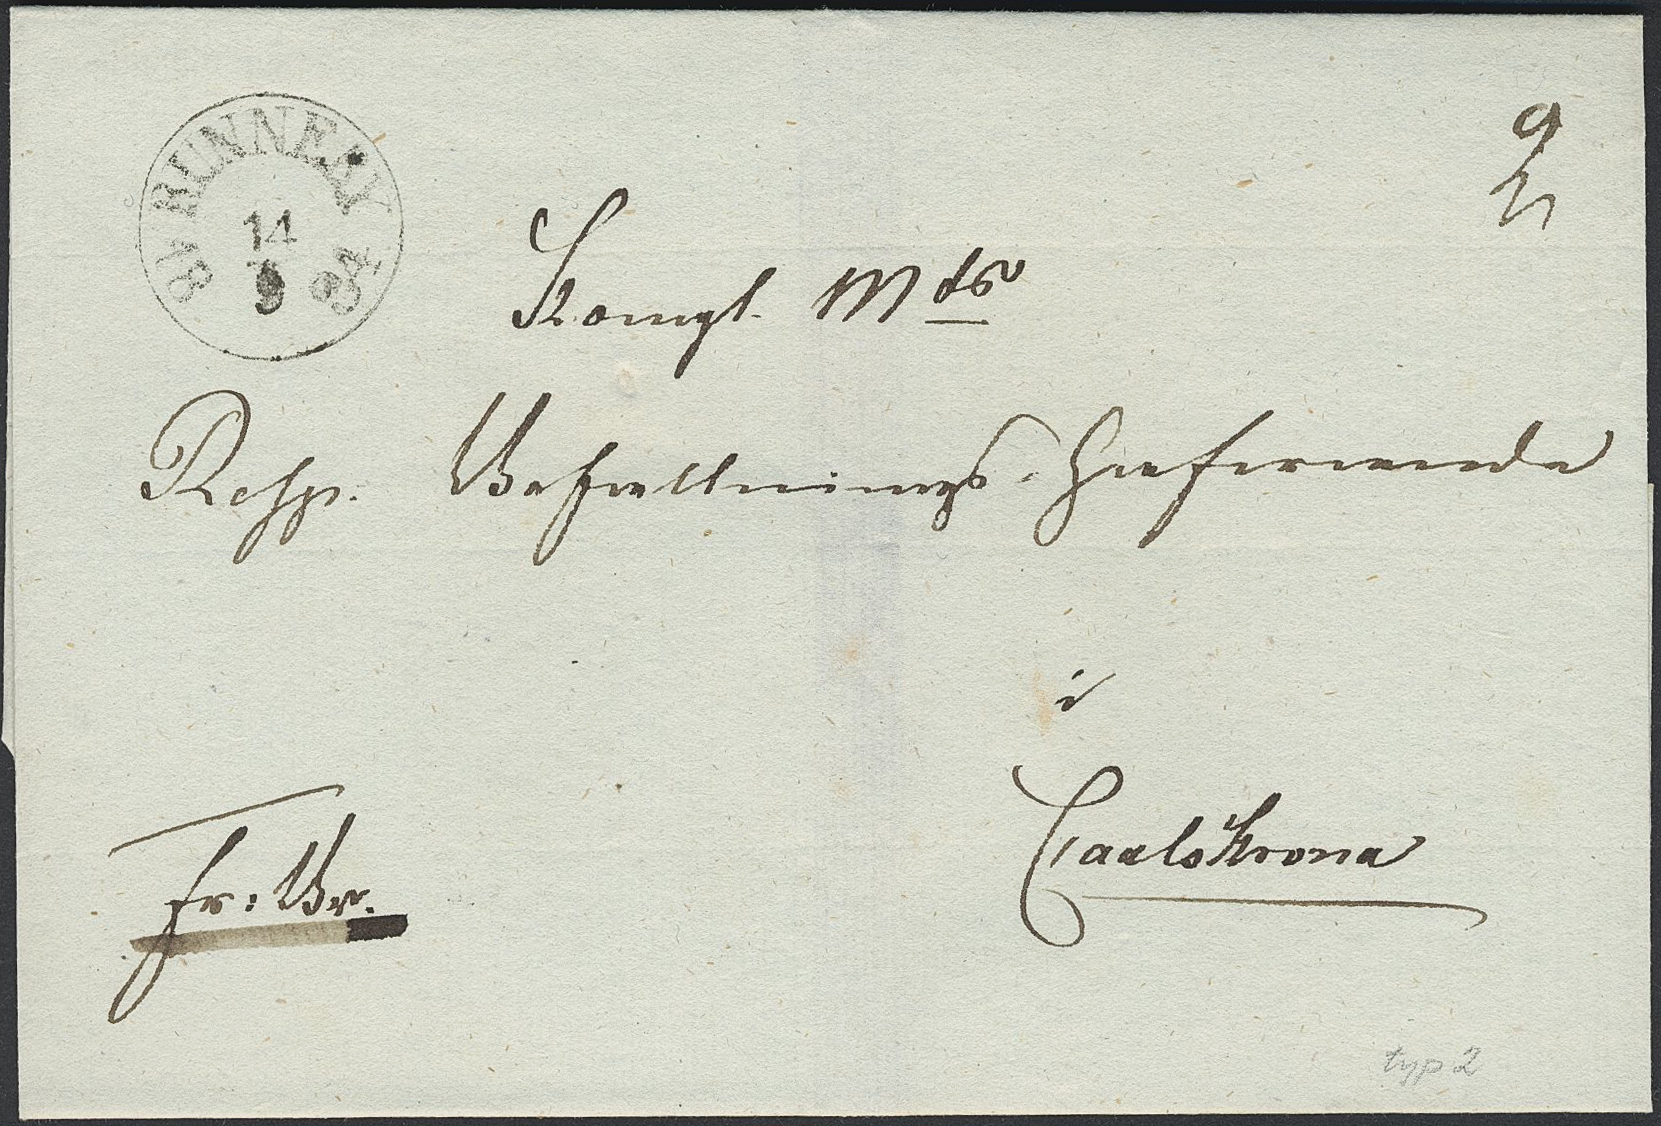 RUNNEBY
14
9
18 34
9
Kongl. Mts
Resp. Befallningshafwande
i
Carlskrona
fr: Br.
typ 2